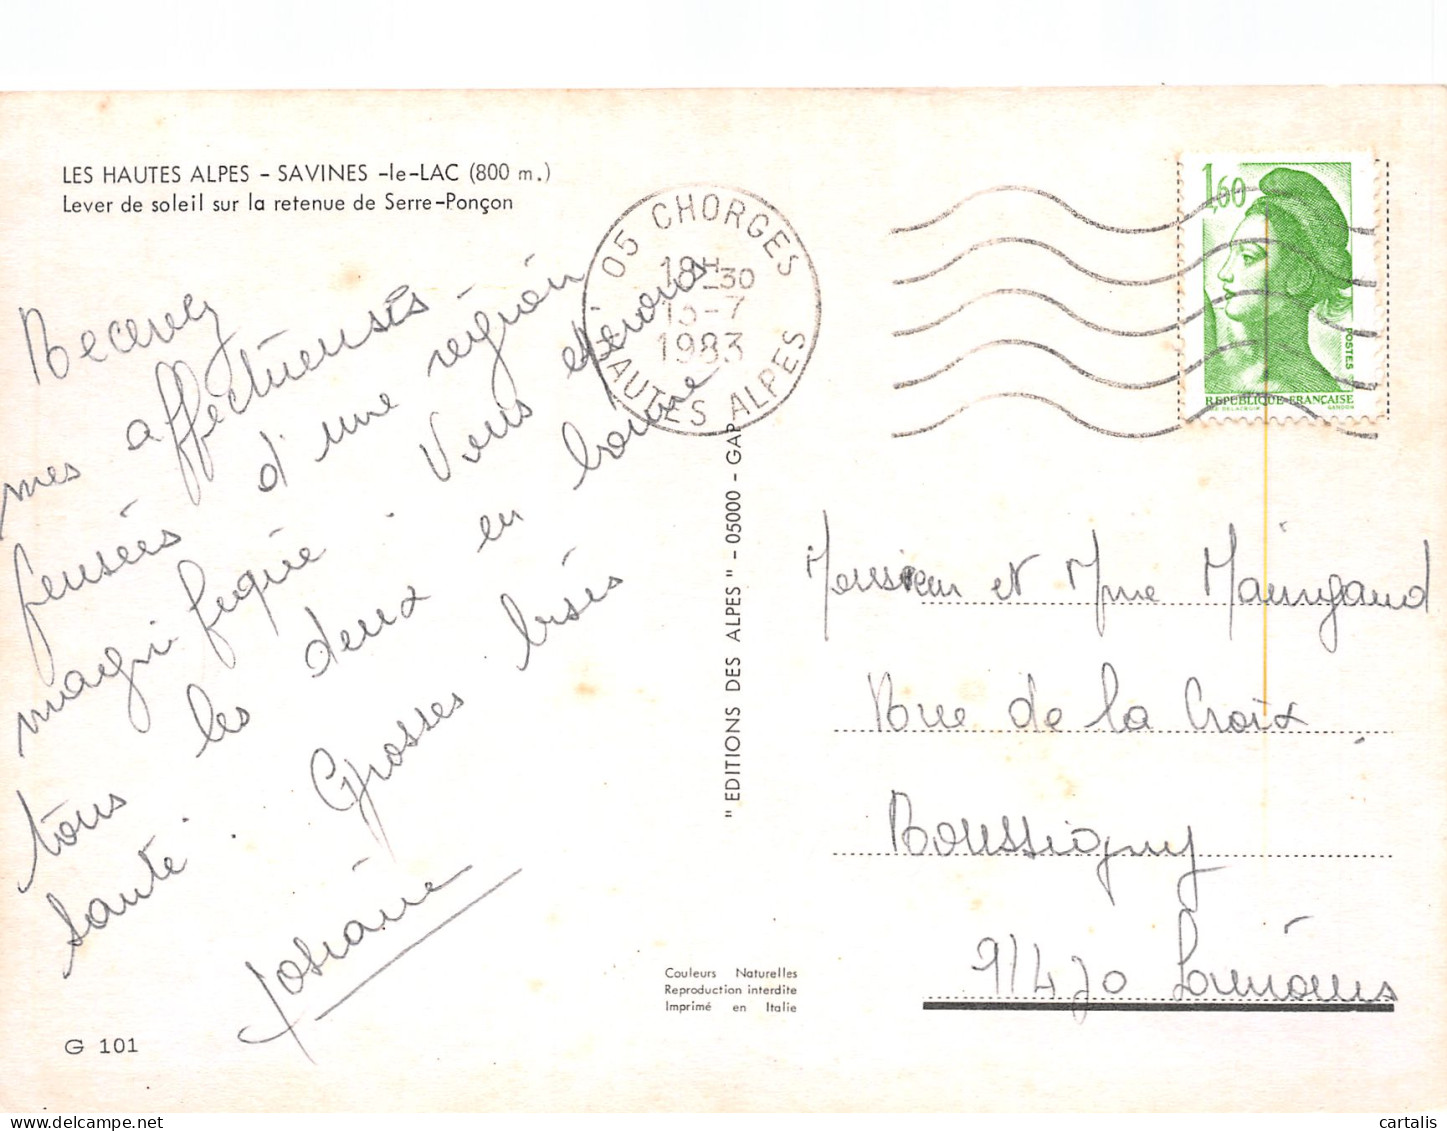 LES HAUTES ALPES - SAVINES -le-LAC (800 m.)
Lever de soleil sur la retenue de Serre-Ponçon
Recevez
mes affectueuses
pensées d'une région
magnifique. Vous espérons
tous les deux en bonne
santé. Grosses bises
Josiane
G 101
05 CHORGES
18H30
1983
HAUTES ALPES
1,60
POSTES
REPUBLIQUE FRANÇAISE
GANDON
" EDITIONS DES ALPES " - 05000 - GAP
Monsieur et Mme Maingaud
Rue de la Croix
Roussigny
91470 Limours
Couleurs Naturelles
Reproduction interdite
Imprimé en Italie
cartalis